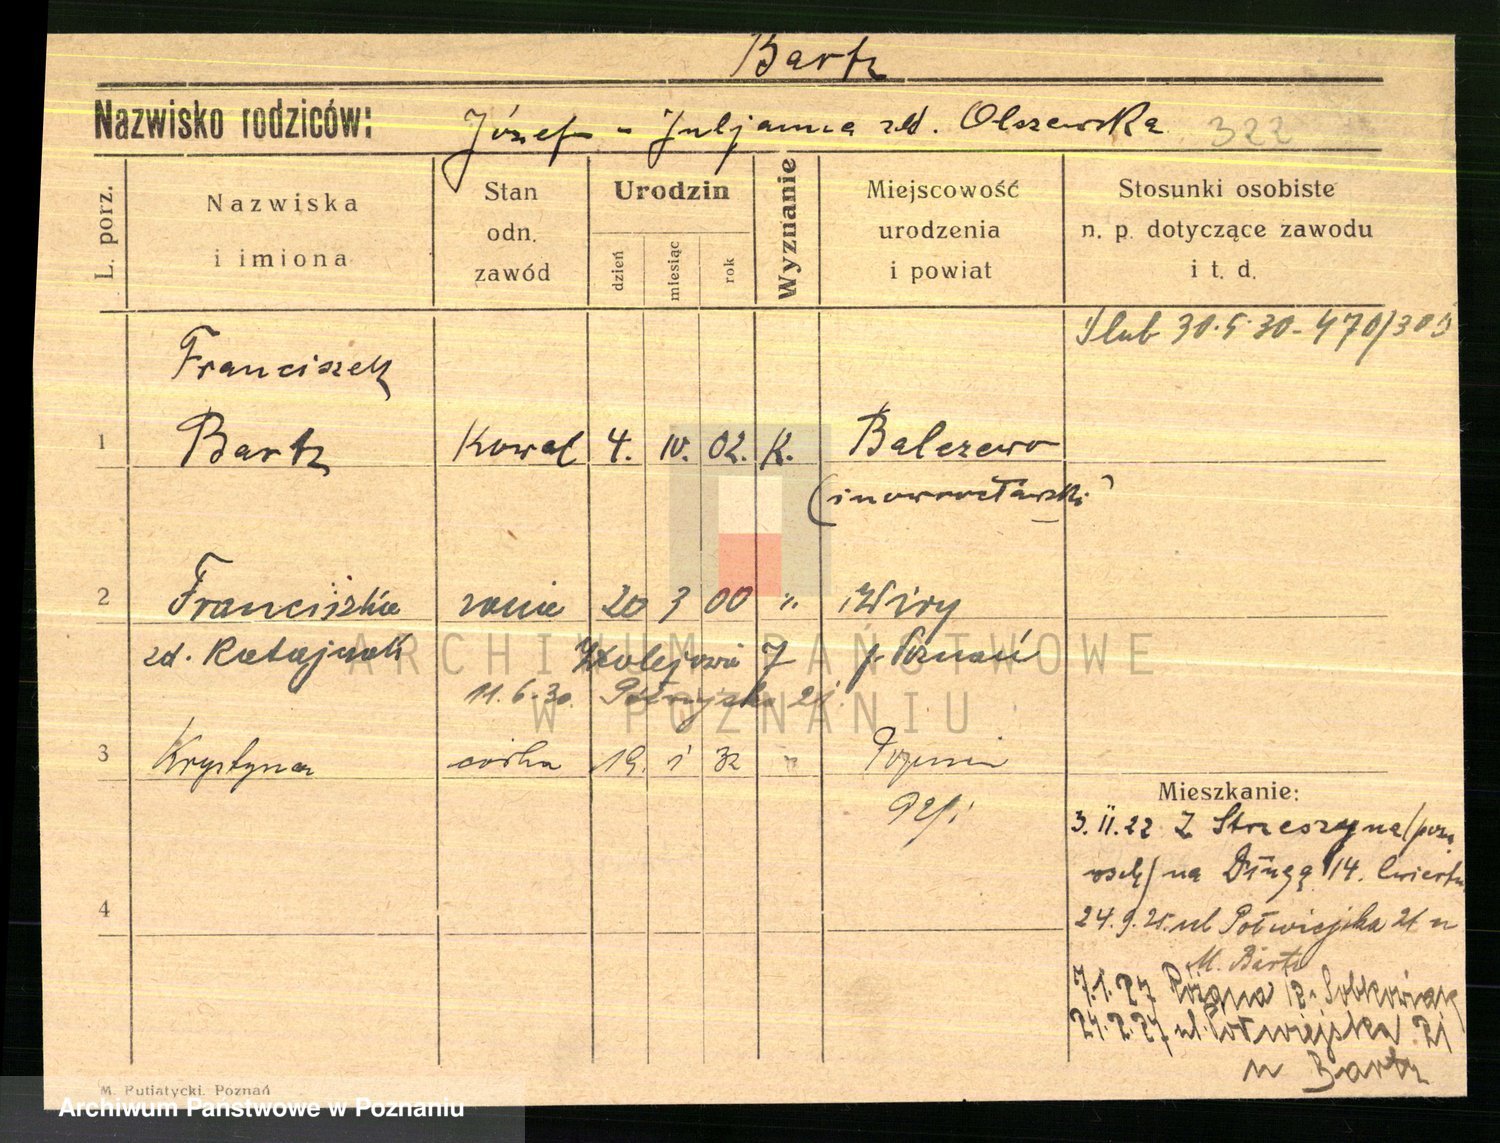 Bartz
Nazwisko rodziców: Józef - Juljanna zd. Olszewska 322
L. porz.
Nazwiska i imiona
Stan odn. zawód
Urodzin
dzień
miesiąc
rok
Wyznanie
Miejscowość urodzenia i powiat
Stosunki osobiste n. p. dotyczące zawodu i t. d.
Ślub 30.5.30 - 470/30
Franciszek
1 Bartz Kowal 4. IV. 02. K. Balczewo
(inowrocławski)
2 Franciszka żona 20 3 00 " Wiry
zd. Ratajczak Kolejowa 7 p. Poznań
11.6.30. Półwiejska 21
3 Krystyna córka 19. 1 32 " Poznań
Mieszkanie:
3.II.22 Z Strzeszyna/pozn.
wsch/ na Długą 14.
4
24.9.25. ul Półwiejska 21 u
M. Bartz
7.1.27 Różana Sobkowiak
24.2.27 ul. Półwiejska 21
u Bartz
M. Putiatycki, Poznań
ARCHIWUM PAŃSTWOWE
W POZNANIU
Archiwum Państwowe w Poznaniu